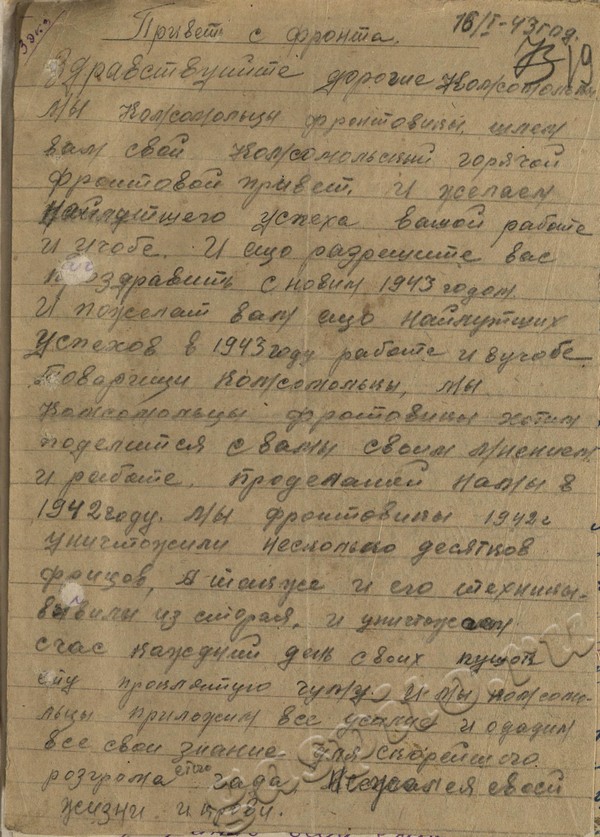 Зэкз
16/I-43 год.
Привет с фронта.
19
Здравствуйте дорогие Комсомольцы
мы комсомольцы фронтовики, шлем
вам свой комсомольский горячой
фронтовой привет. и желаем
найлутшего успеха вашой работе
и учобе. И ещо разрешите вас
поздравить с новим 1943 годом
И пожелат вам ещо найлутших
успехов в 1943 году работе и вучобе.
Товарищи комсомольцы, мы
комсомольцы фронтовики хотим
поделится с вамы своим мнением
и работе, проделаной намы в
1942 году. мы фронтовики 1942 г
уничтожили несколько десятков
фрицов, А также и его техники
вывили из строя, и уничтожаем
счас каждий день своих пушок
ету проклятую чуму. И мы комсомо-
льцы приложим все усилие и одадим
все свои знание для скорейшого
розгрома етого гада, своей
жизни и крови.